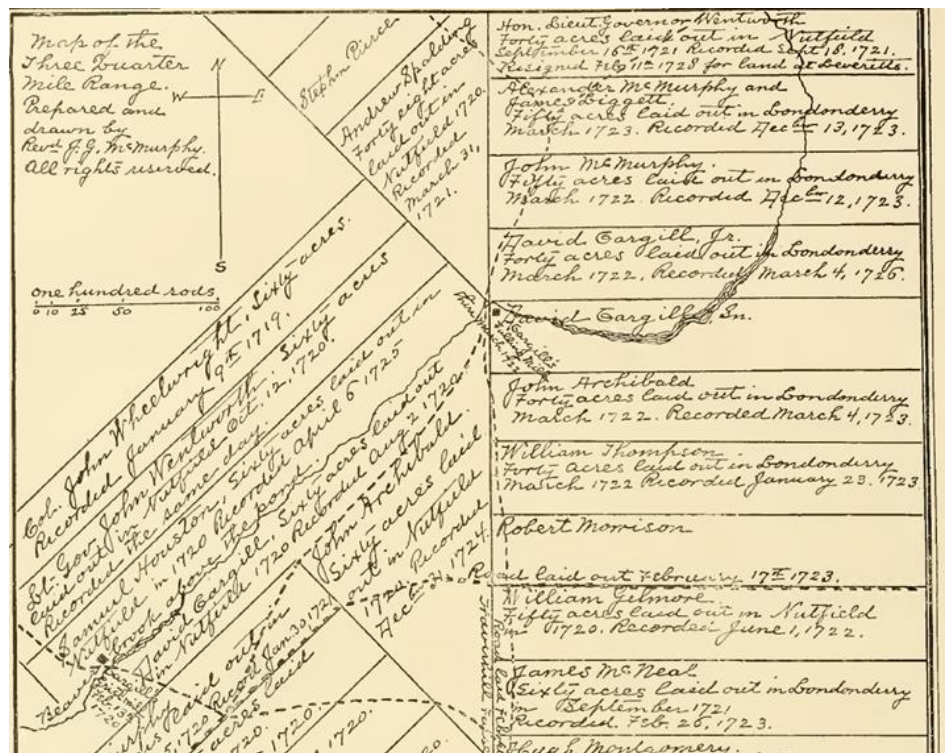 Map of the
Three Quarter
Mile Range.
Prepared and
drawn by
Revd J. G. McMurphy.
All rights reserved.
N
W
E
S
one hundred rods
0 10 25 50 100
Stephen Pierce
Andrew Spalding
Forty eight acres
laid out in
Nutfield 1720.
Recorded
March 31,
1721.
Col. John Wheelwright, Sixty acres.
Recorded January 9th 1719.
Lt. Gov. John Wentworth. Sixty acres
laid out in Nutfield Oct. 12, 1720.
Recorded the same day.
Samuel Houston, Sixty acres laid out in
Nutfield in 1720 Recorded April 6 1725
Beaver brook above the pond.
David Cargill, Sixty acres laid out
in Nutfield 1720 Recorded Aug. 2 1720.
John Archibald.
Sixty acres laid
out in Nutfield
1720. Recorded
Dec. 31 1724.
Hon. Lieut. Governor Wentworth
Forty acres laid out in Nutfield
September 16th 1721 Recorded Sept. 18. 1721.
Resigned Feb 11th 1728 for land at Leveretts.
Alexander McMurphy and
James Liggett.
Fifty acres laid out in Londonderry
March 1723. Recorded Decbr 13, 1723.
John McMurphy.
Fifty acres laid out in Londonderry
March 1722. Recorded Decbr 12, 1723.
David Cargill, Jr.
Forty acres laid out in Londonderry
March 1722. Recorded March 4, 1726.
David Cargill, Sn.
Cargill's
Fulling Mill
John Archibald
Forty acres laid out in Londonderry
March 1722. Recorded March 4, 1723.
William Thompson.
Forty acres laid out in Londonderry
March 1722 Recorded January 23. 1723
Robert Morrison
Road laid out February 17th 1723.
William Gilmore
Fifty acres laid out in Nutfield
in 1720. Recorded June 1, 1722.
James McNeal
Sixty acres laid out in Londonderry
in September 1721
Recorded. Feb. 26, 1723.
Hugh Montgomery.